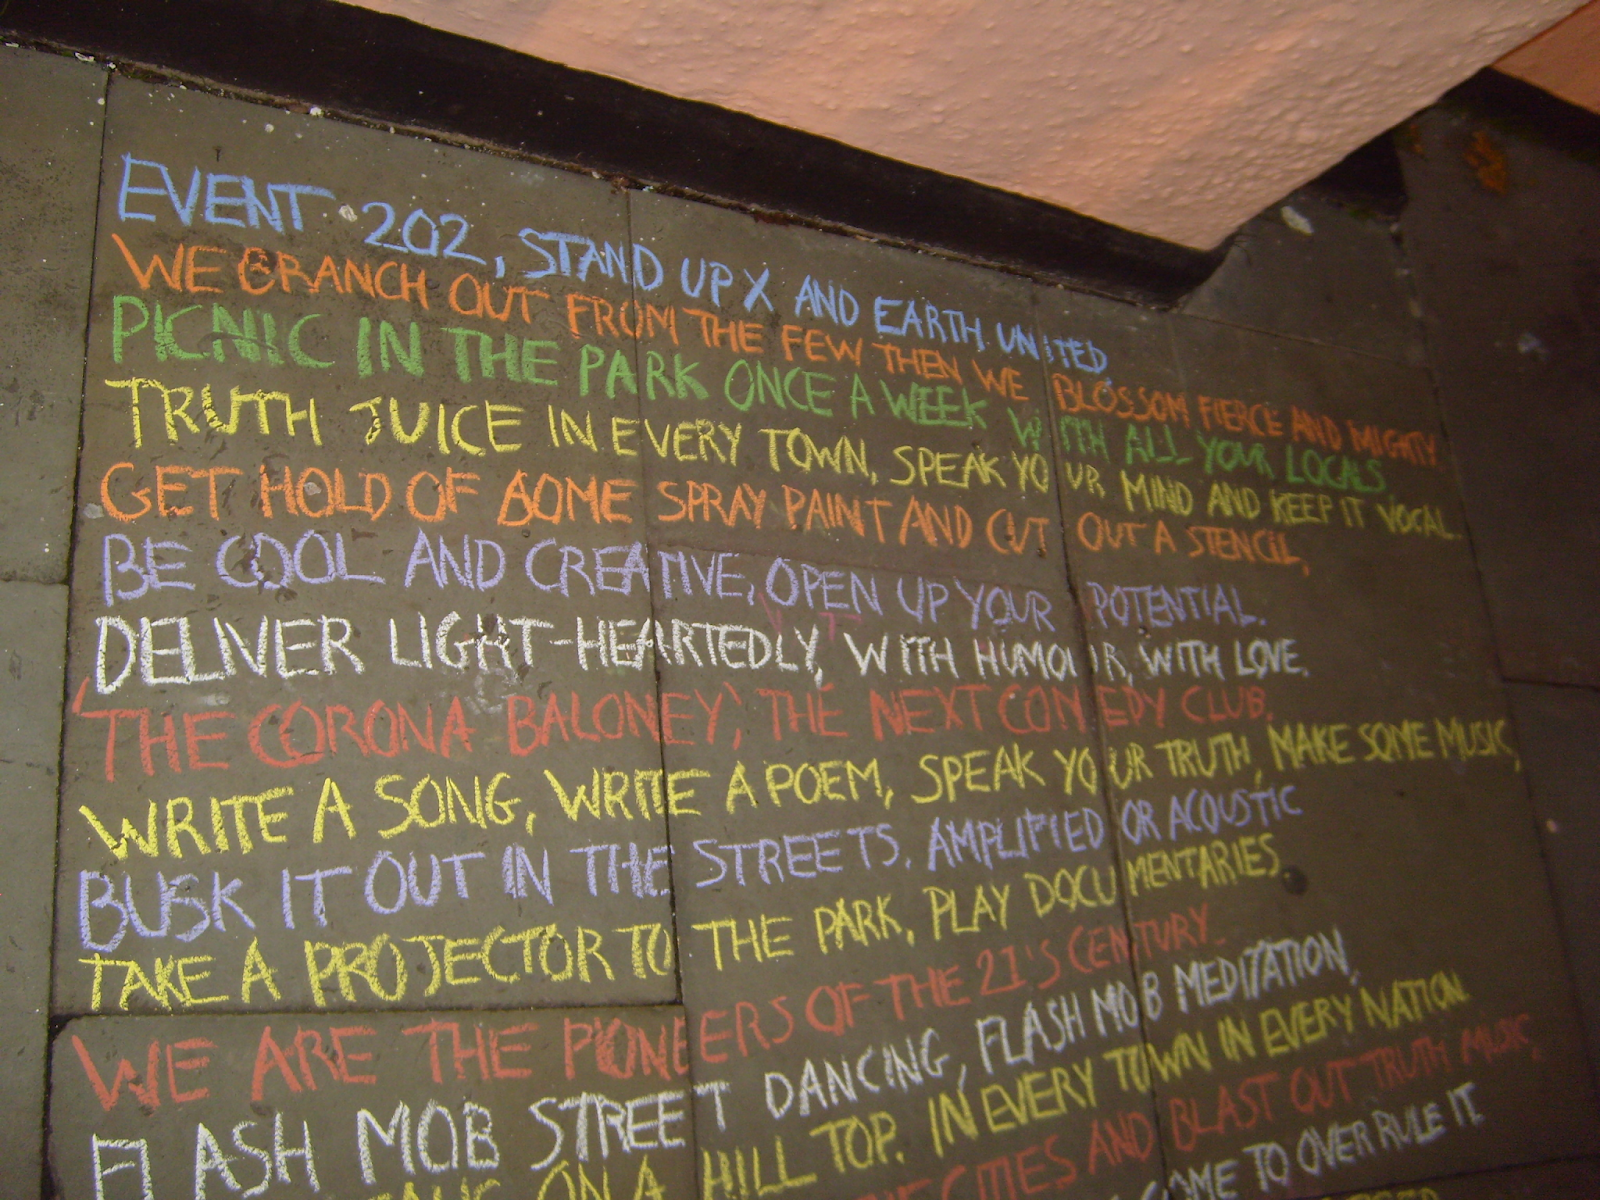 EVENT 202, STAND UP X AND EARTH UNITED,
WE BRANCH OUT FROM THE FEW THEN WE BLOSSOM FIERCE AND MIGHTY.
PICNIC IN THE PARK ONCE A WEEK WITH ALL YOUR LOCALS
TRUTH JUICE IN EVERY TOWN, SPEAK YOUR MIND AND KEEP IT VOCAL.
GET HOLD OF SOME SPRAY PAINT AND CUT OUT A STENCIL,
BE COOL AND CREATIVE, OPEN UP YOUR POTENTIAL.
DELIVER LIGHT-HEARTEDLY, WITH HUMOUR, WITH LOVE,
'THE CORONA BALONEY', THE NEXT COMEDY CLUB.
WRITE A SONG, WRITE A POEM, SPEAK YOUR TRUTH, MAKE SOME MUSIC,
BUSK IT OUT IN THE STREETS, AMPLIFIED OR ACOUSTIC
TAKE A PROJECTOR TO THE PARK, PLAY DOCUMENTARIES.
WE ARE THE PIONEERS OF THE 21'S CENTURY.
FLASH MOB STREET DANCING, FLASH MOB MEDITATION,
ON A HILL TOP. IN EVERY TOWN IN EVERY NATION.
CITIES AND BLAST OUT TRUTH MUSIC,
COME TO OVER RULE IT.